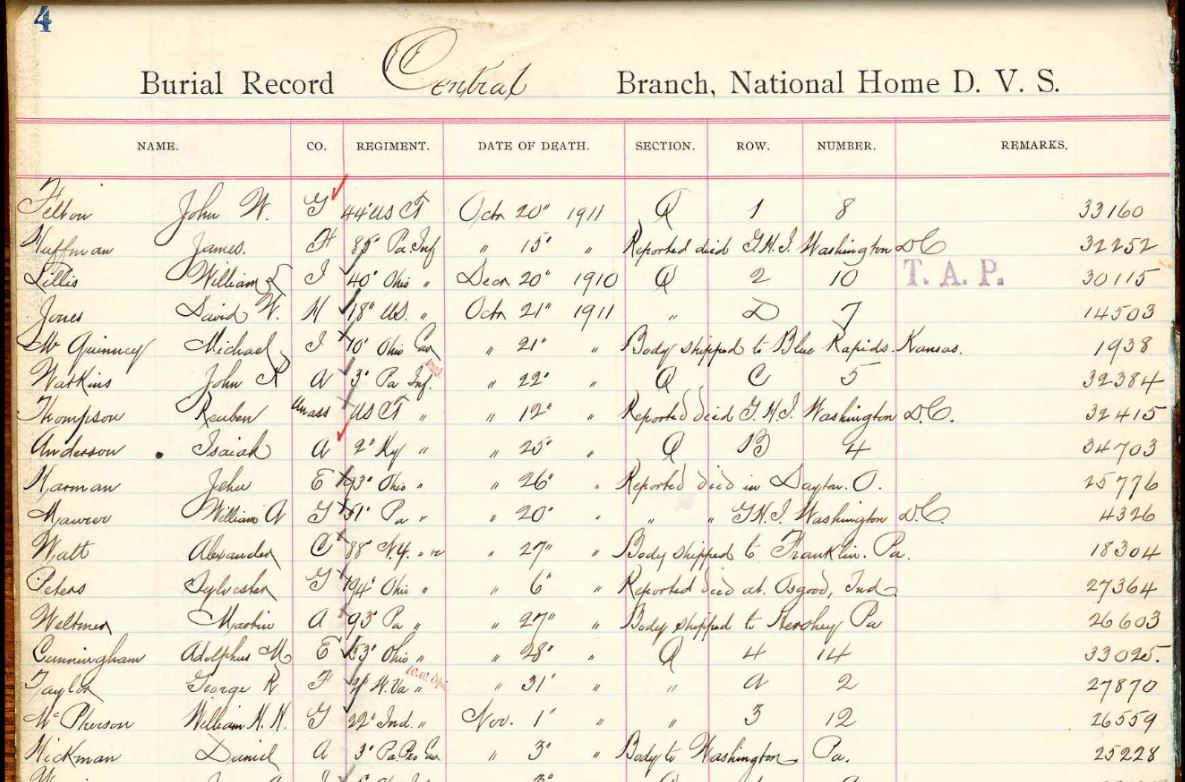 4
Burial Record Central Branch, National Home D. V. S.
NAME. CO. REGIMENT. DATE OF DEATH. SECTION. ROW. NUMBER. REMARKS.
John W. G 44" US CT Octr 20" 1911 Q 1 8 33160
Huffman James. H 85" Pa Inf " 15" " Reported died G.H.I. Washington DC 32252
Lillis William J. I 40" Ohio " Decr 20" 1910 Q 2 10 T. A. P. 30115
Jones David W. H 18" US. " Octr 21" 1911 " D 7 14503
McQuinney Michael I 10" Ohio Cav " 21" " Body shipped to Blue Rapids. Kansas. 1938
Watkins John R A 3" Pa Inf. " 22" " Q C 5 32384
Thompson Reuben Unass US CT " " 12" " Reported died G.H.I. Washington D.C. 32415
Anderson Isaiah A 2" Ky " " 25" " Q B 4 34703
Harman Jehu E Ohio " " 26" " Reported died in Dayton. O. 25776
Maurer William A G 51" Pa " " 20" " " " G.H.I Washington D.C. 4326
Watt Alexander C 88" N.Y. " " 27" " Body shipped to Franklin. Pa. 18304
Peters Sylvester G 194" Ohio " " 6" " Reported died at. Osgood, Ind 27364
Weltmer Martin A 93" Pa " " 27" " Body shipped to Hershey Pa 26603
Cunningham Adolphus M E 53" Ohio " " 28" " Q 4 14 33025.
Taylor George R F W.Va " " 31" " " A 2 27870
McPherson William H. H. G 22" Ind. " Nov. 1" " " 3 12 26559
Hickman Daniel A Pa. " 3" " Body to Washington Pa. 25228